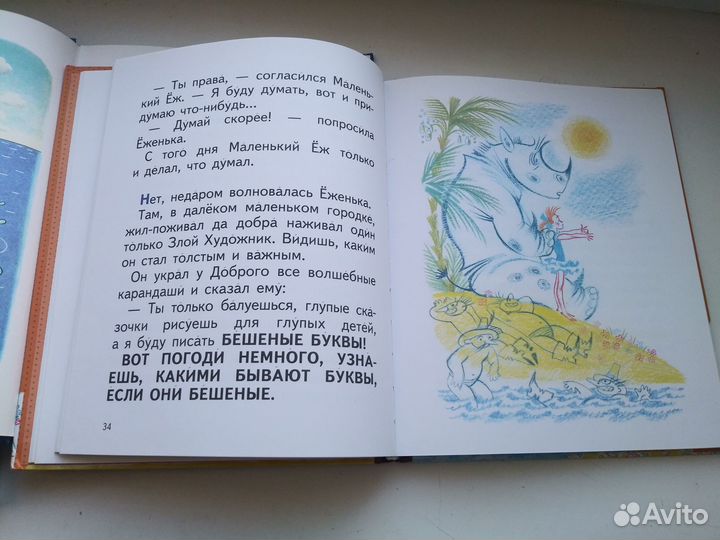 — Ты права, — согласился Малень-
кий Ёж. — Я буду думать, вот и при-
думаю что-нибудь...
— Думай скорее! — попросила
Ёженька.
С того дня Маленький Ёж только
и делал, что думал.
Нет, недаром волновалась Ёженька.
Там, в далёком маленьком городке,
жил-поживал да добра наживал один
только Злой Художник. Видишь, каким
он стал толстым и важным.
Он украл у Доброго все волшебные
карандаши и сказал ему:
— Ты только балуешься, глупые ска-
зочки рисуешь для глупых детей,
а я буду писать БЕШЕНЫЕ БУКВЫ!
ВОТ ПОГОДИ НЕМНОГО, УЗНА-
ЕШЬ, КАКИМИ БЫВАЮТ БУКВЫ,
ЕСЛИ ОНИ БЕШЕНЫЕ.
34
Avito